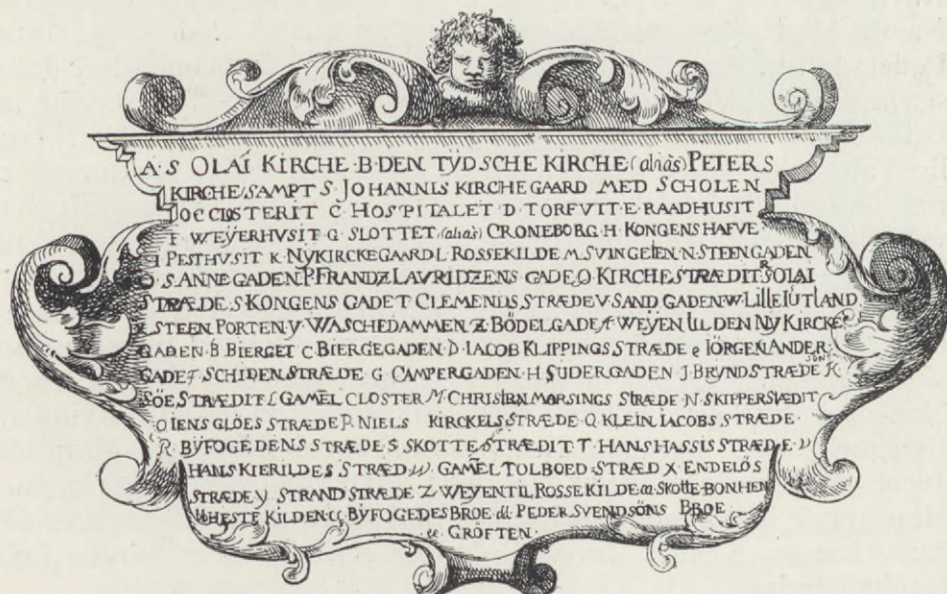 A·S OLAI KIRCHE·B·DEN TŸDSCHE KIRCHE (aliàs) PETERS
KIRCHE SAMPT S·JOHANNIS KIRCHEGAARD MED SCHOLEN
Joc CLOSTERIT C·HOSPITALET·D·TORFUIT·E·RAADHUSIT
F·WEŸERHVSIT G·SLOTTET (aliàs) CRONEBORG·H·KONGENS HAFVE
I PESTHUSIT K·NYKIRCKEGAARD L·ROSSEKILDE M·SVINGELEN·N·STEENGADEN
O·S·ANNEGADEN·P·FRANDZ LAVRIDZENS GADE Q KIRCHESTRÆDIT R·S·OLAI
STRÆDE·S·KONGENS GADE T CLEMENDS STRÆDE V·SAND GADEN·W·LILLE IUTLAND
X STEEN PORTEN·Y·WASCHEDAMMEN·Z·BÖDELGADE A·WEŸEN til DEN NY KIRCKE
GADEN·B BIERGET C BIERGEGADEN·D·IACOB KLIPPINGS STRÆDE e IÖRGEN ANDER
SÖNS
GADE F·SCHIDEN STRÆDE G CAMPERGADEN·H SUDERGADEN J BRVND STRÆDE K
SÖE STRÆDIT L GAMEL CLOSTER M·CHRISTEN MORSINGS STRÆDE·N·SKIPPERSTÆDIT
O IENS GLÖES STRÆDE P·NIELS KIRCKELS STRÆDE·Q KLEIN IACOBS STRÆDE·
R·BYFOGEDENS STRÆDE S SKOTTE STRÆDIT T HANS HASSIS STRÆDE V
HANS KIERILDES STRÆD W GAMEL TOLBOED STRÆD X ENDELÖS
STRÆDE Y STRAND STRÆDE Z WEYEN TIL ROSSEKILDE aa SKOTTE-BONHEN
bb HESTE KILDEN cc BYFOGEDES BROE dd PEDER SVENDSÖNS BROE
ee GRÖFTEN·